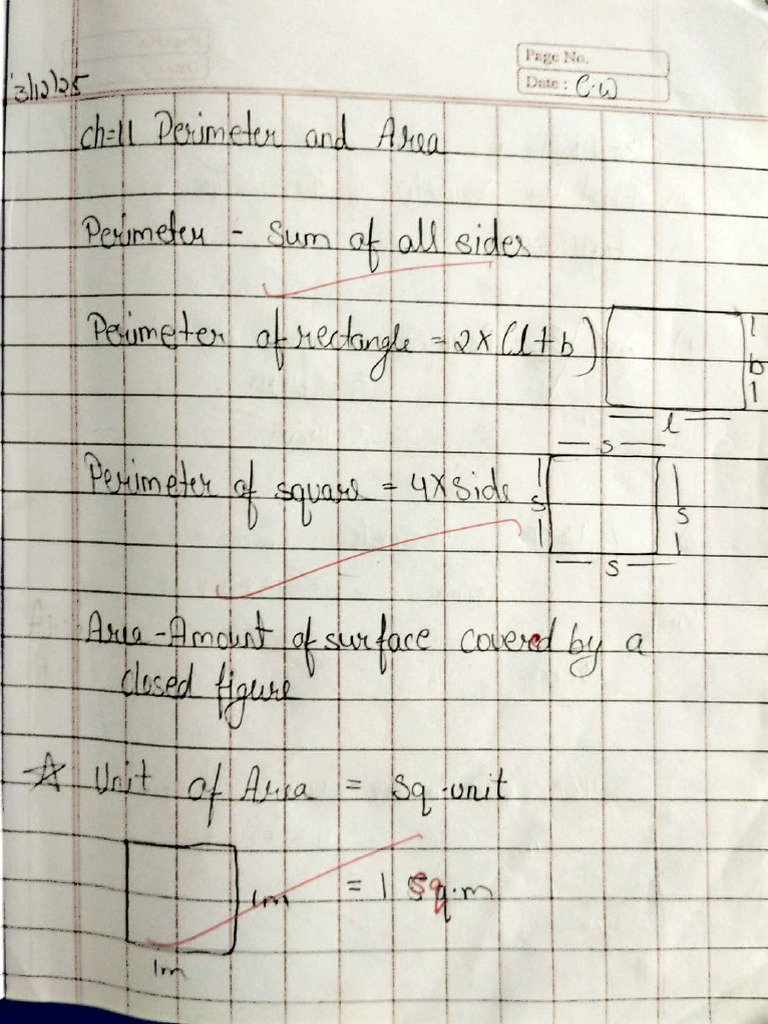 Page No.
3/12/25
Date : C.W
ch=11 Perimeter and Area
Perimeter - Sum of all sides
Perimeter of rectangle = 2x(l+b)
b
l
s
Perimeter of square = 4x side
s
s
s
Area - Amount of surface covered by a
closed figure
☆ Unit of Area = Sq.unit
1m = 1 Sq.m
1m